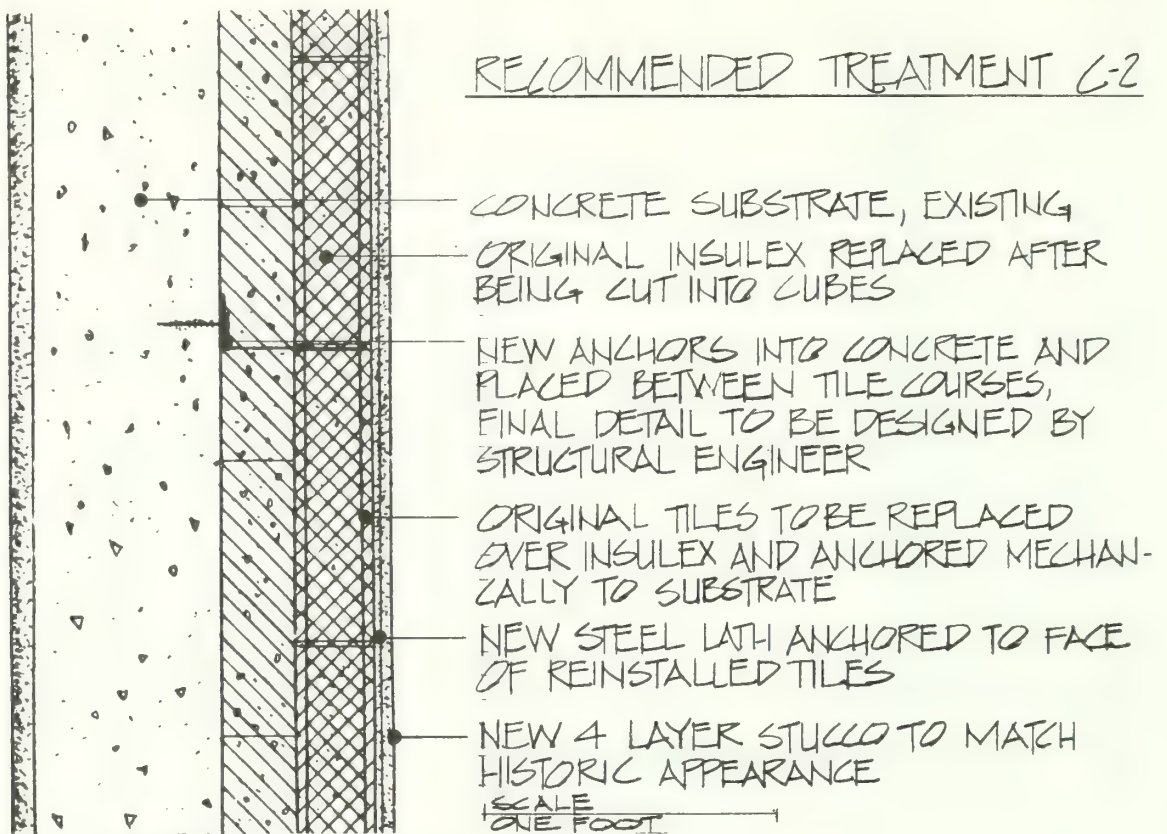 RECOMMENDED TREATMENT C-2
CONCRETE SUBSTRATE, EXISTING
ORIGINAL INSULEX REPLACED AFTER
BEING CUT INTO CUBES
NEW ANCHORS INTO CONCRETE AND
PLACED BETWEEN TILE COURSES,
FINAL DETAIL TO BE DESIGNED BY
STRUCTURAL ENGINEER
ORIGINAL TILES TO BE REPLACED
OVER INSULEX AND ANCHORED MECHAN-
ICALLY TO SUBSTRATE
NEW STEEL LATH ANCHORED TO FACE
OF REINSTALLED TILES
NEW 4 LAYER STUCCO TO MATCH
HISTORIC APPEARANCE
SCALE
ONE FOOT